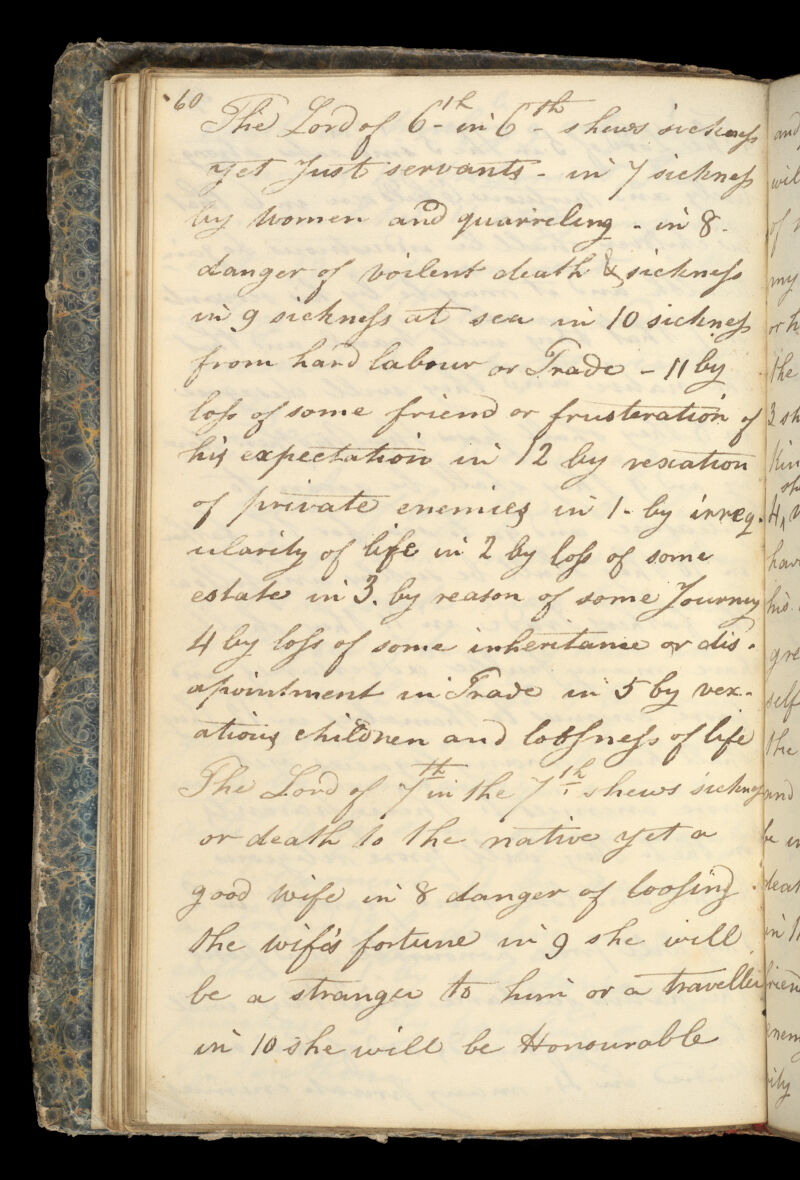 60
The Lord of 6th in 6th shews sickness
yet Just servants - in 7 sickness
by Women and quarreling - in 8 -
danger of voilent death & sickness
in 9 sickness at sea in 10 sickness
from hard labour or Trade - 11 by
loss of some friend or frusteration of
his expectation in 12 by vexation
of private enemies in 1 - by irreg-
ularity of life in 2 by loss of some
estate in 3. by reason of some Journey
4 by loss of some inheritance or dis-
apointment in Trade in 5 by vex-
atious children and loossness of life
The Lord of 7th in the 7th shews sickness
or death to the native yet a
good wife in 8 danger of loosing
the wife's fortune in 9 she will
be a stranger to him or a traveller
in 10 she will be Honourable
and
wil
of
my
or h
the
3 sh
Kin
sh
4
hav
his
gre
self
the
and
be in
deat
in 11
frien
enem
ily